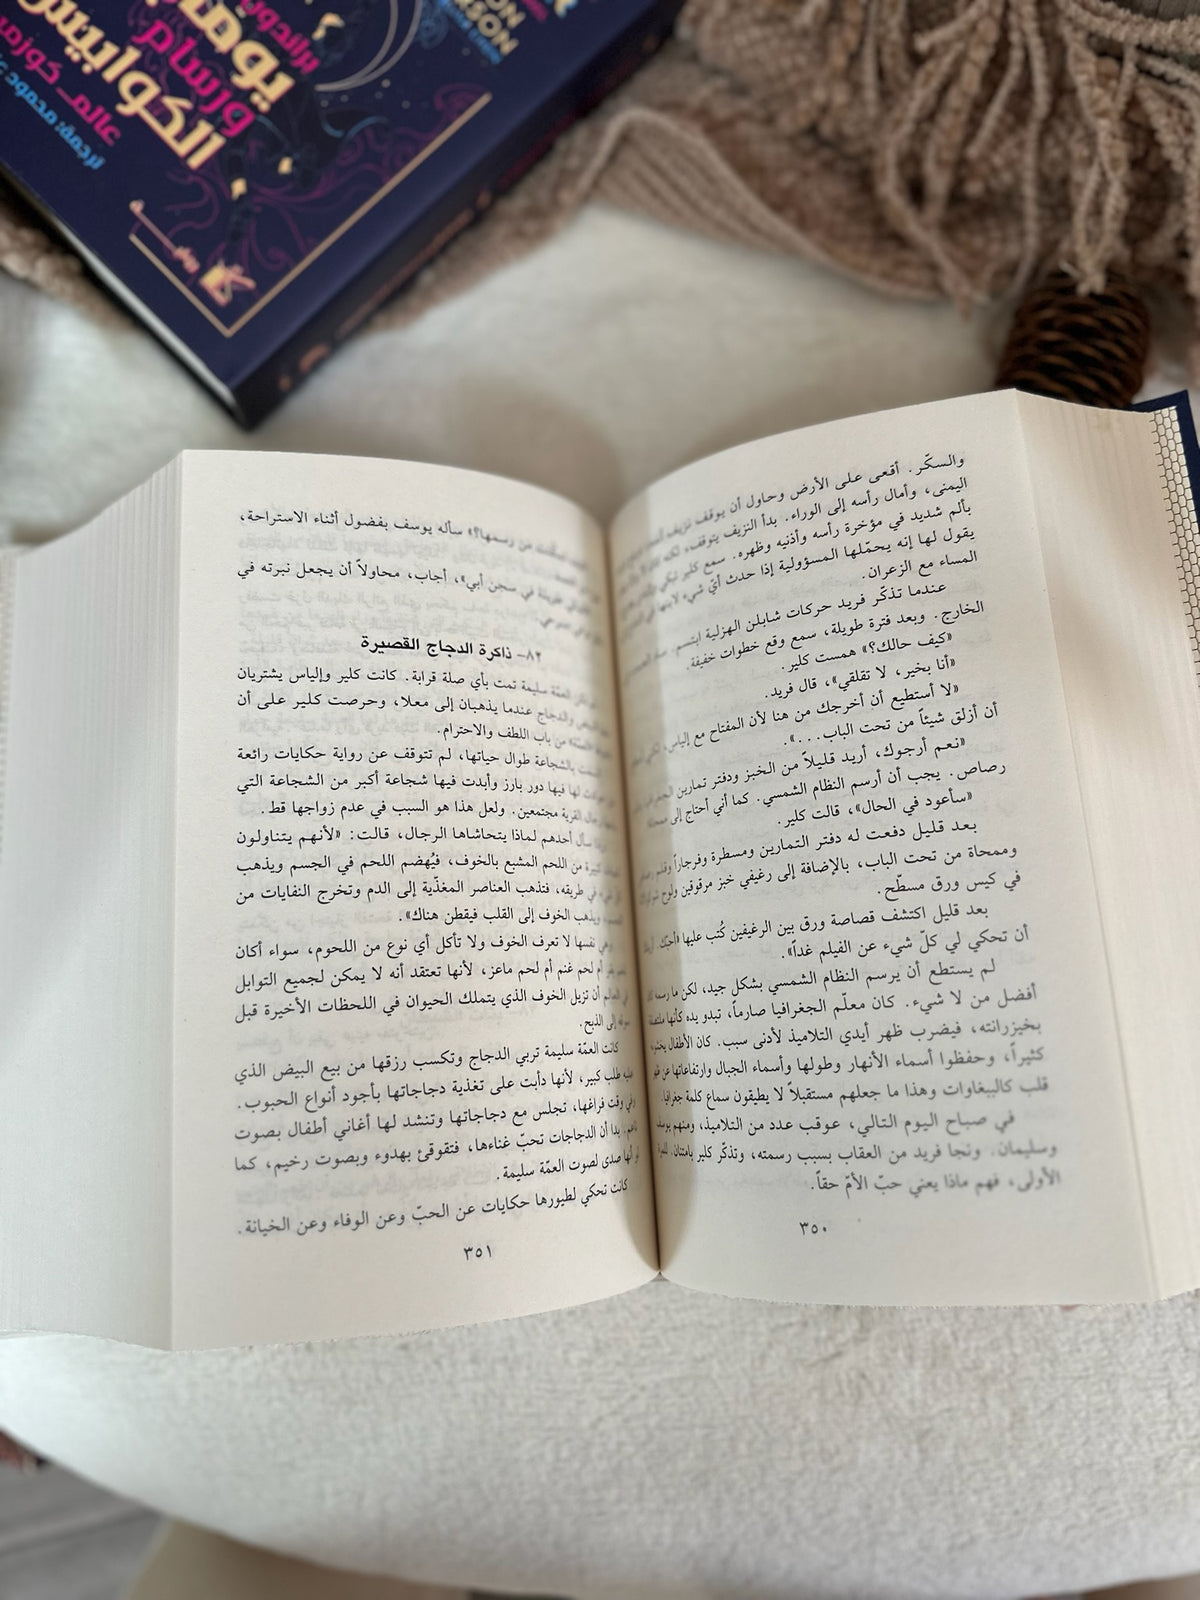 براندون
يومي
ورسام
الكوابيس
عالم كوزمير
ترجمة: محمود
رواية
والسكّر. أقعى على الأرض وحاول أن يوقف نزيف
اليمنى، وأمال رأسه إلى الوراء. بدأ النزيف يتوقف، لكنه
بألم شديد في مؤخرة رأسه وأذنيه وظهره. سمع كلير تبكي
يقول لها إنه يحمّلها المسؤولية إذا حدث أيّ شيء لابنها
المساء مع الزعران.
عندما تذكّر فريد حركات شابلن الهزلية ابتسم.
الخارج. وبعد فترة طويلة، سمع وقع خطوات خفيفة.
«كيف حالك؟» همست كلير.
«أنا بخير، لا تقلقي»، قال فريد.
«لا أستطيع أن أخرجك من هنا لأن المفتاح مع إلياس،
أن أزلق شيئاً من تحت الباب...».
«نعم أرجوك، أريد قليلاً من الخبز ودفتر تمارين
رصاص. يجب أن أرسم النظام الشمسي. كما أني أحتاج إلى
«سأعود في الحال»، قالت كلير.
بعد قليل دفعت له دفتر التمارين ومسطرة وفرجاراً وقلم
وممحاة من تحت الباب، بالإضافة إلى رغيفي خبز مرقوقين ولوح
في كيس ورق مسطّح.
بعد قليل اكتشف قصاصة ورق بين الرغيفين كُتب عليها «أحبّك.
أن تحكي لي كلّ شيء عن الفيلم غداً».
لم يستطع أن يرسم النظام الشمسي بشكل جيد، لكن ما رسمه
أفضل من لا شيء. كان معلّم الجغرافيا صارماً، تبدو يده كأنها ملتصقة
بخيزرانته، فيضرب ظهر أيدي التلاميذ لأدنى سبب. كان الأطفال
كثيراً، وحفظوا أسماء الأنهار وطولها وأسماء الجبال وارتفاعاتها عن ظهر
قلب كالببغاوات وهذا ما جعلهم مستقبلاً لا يطيقون سماع كلمة جغرافيا.
في صباح اليوم التالي، عوقب عدد من التلاميذ، ومنهم يوسف
وسليمان. ونجا فريد من العقاب بسبب رسمته، وتذكّر كلير بامتنان. للمرة
الأولى، فهم ماذا يعني حبّ الأمّ حقاً.
٣٥٠
من رسمها؟» سأله يوسف بفضول أثناء الاستراحة،
في سجن أبي»، أجاب، محاولاً أن يجعل نبرته في
٨٢- ذاكرة الدجاج القصيرة
العمّة سليمة تمت بأي صلة قرابة. كانت كلير وإلياس يشتريان
والدجاج عندما يذهبان إلى معلا، وحرصت كلير على أن
من باب اللطف والاحترام.
بالشجاعة طوال حياتها، لم تتوقف عن رواية حكايات رائعة
لها فيها دور بارز وأبدت فيها شجاعة أكبر من الشجاعة التي
رجال القرية مجتمعين. ولعل هذا هو السبب في عدم زواجها قط.
سأل أحدهم لماذا يتحاشاها الرجال، قالت: «لأنهم يتناولون
كبيرة من اللحم المشبع بالخوف، فيُهضم اللحم في الجسم ويذهب
في طريقه، فتذهب العناصر المغذّية إلى الدم وتخرج النفايات من
ويذهب الخوف إلى القلب فيقطن هناك».
نفسها لا تعرف الخوف ولا تأكل أي نوع من اللحوم، سواء أكان
أم لحم غنم أم لحم ماعز، لأنها تعتقد أنه لا يمكن لجميع التوابل
أن تزيل الخوف الذي يتملك الحيوان في اللحظات الأخيرة قبل
إلى الذبح.
كانت العمّة سليمة تربي الدجاج وتكسب رزقها من بيع البيض الذي
عليه طلب كبير، لأنها دأبت على تغذية دجاجاتها بأجود أنواع الحبوب.
وفي وقت فراغها، تجلس مع دجاجاتها وتنشد لها أغاني أطفال بصوت
بدا أن الدجاجات تحبّ غناءها، فتقوقئ بهدوء وبصوت رخيم، كما
لو أنها صدى لصوت العمّة سليمة.
كانت تحكي لطيورها حكايات عن الحبّ وعن الوفاء وعن الخيانة.
٣٥١